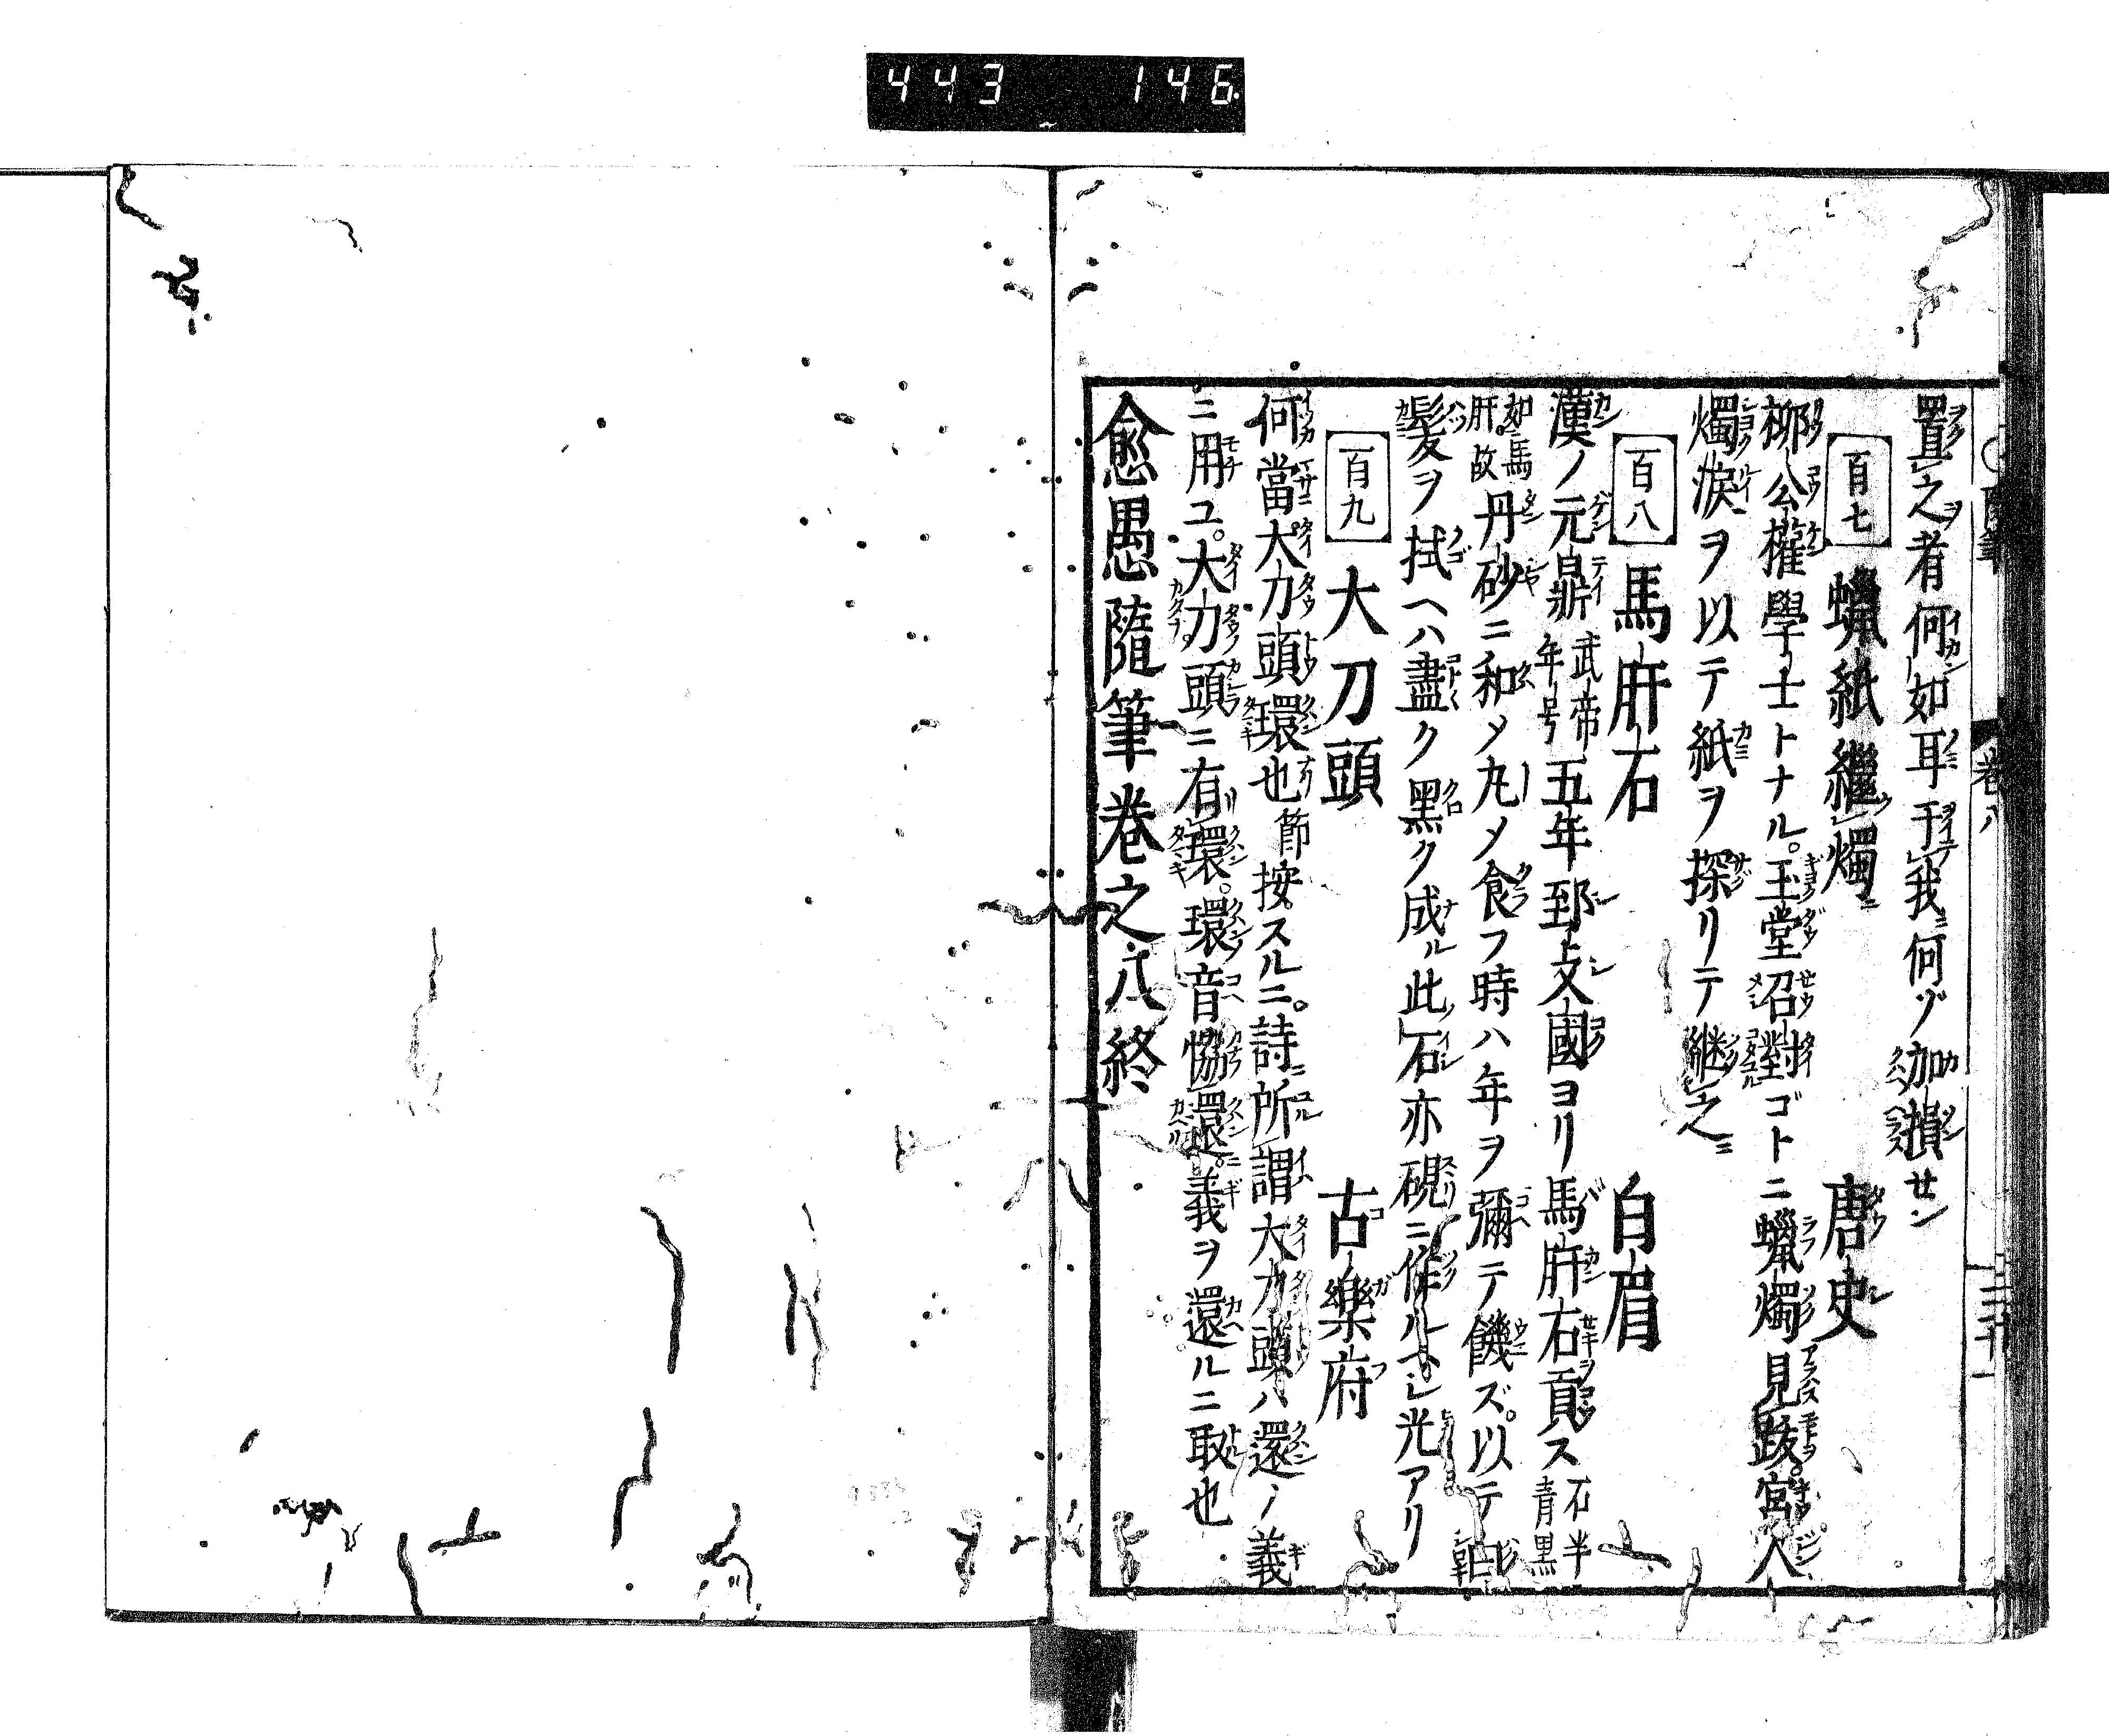 443 146
置之者何如耳于我何ゾ加損セン
百七 蝋紙繼燭 唐史
柳公權學士トナル。玉堂召對ゴトニ蝋燭見跋宮人
燭涙ヲ以テ紙ヲ探リテ継之
百八 馬肝石 白眉
漢ノ元鼎武帝年号五年郅支國ヨリ馬肝石貢ス石半青黒
如馬肝。故丹砂ニ和メ丸メ食フ時ハ年ヲ彌テ饑ズ。以テ
髪ヲ拭ヘハ盡ク黒ク成ル此石亦硯ニ作ルヘシ光アリ
百九 大刀頭 古樂府
何當大刀頭環也節按スルニ。詩所謂大刀頭ハ還ノ義
ニ用ユ。大刀頭ニ有環。環音協還。義ヲ還ルニ取也
愈愚隨筆卷之八終
卷八